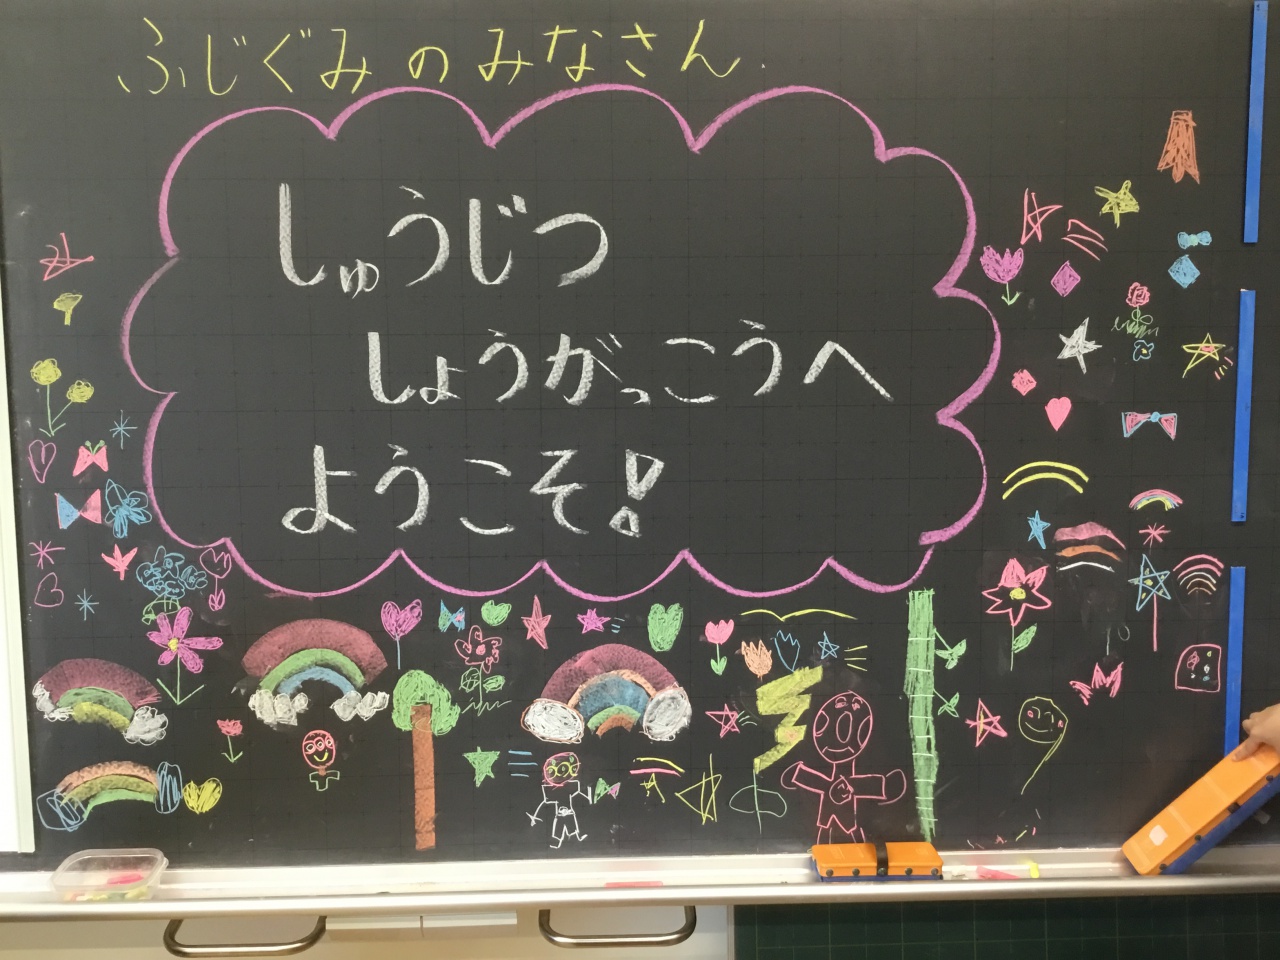 ふじぐみのみなさん.
しゅうじつ
しょうがっこうへ
ようこそ!